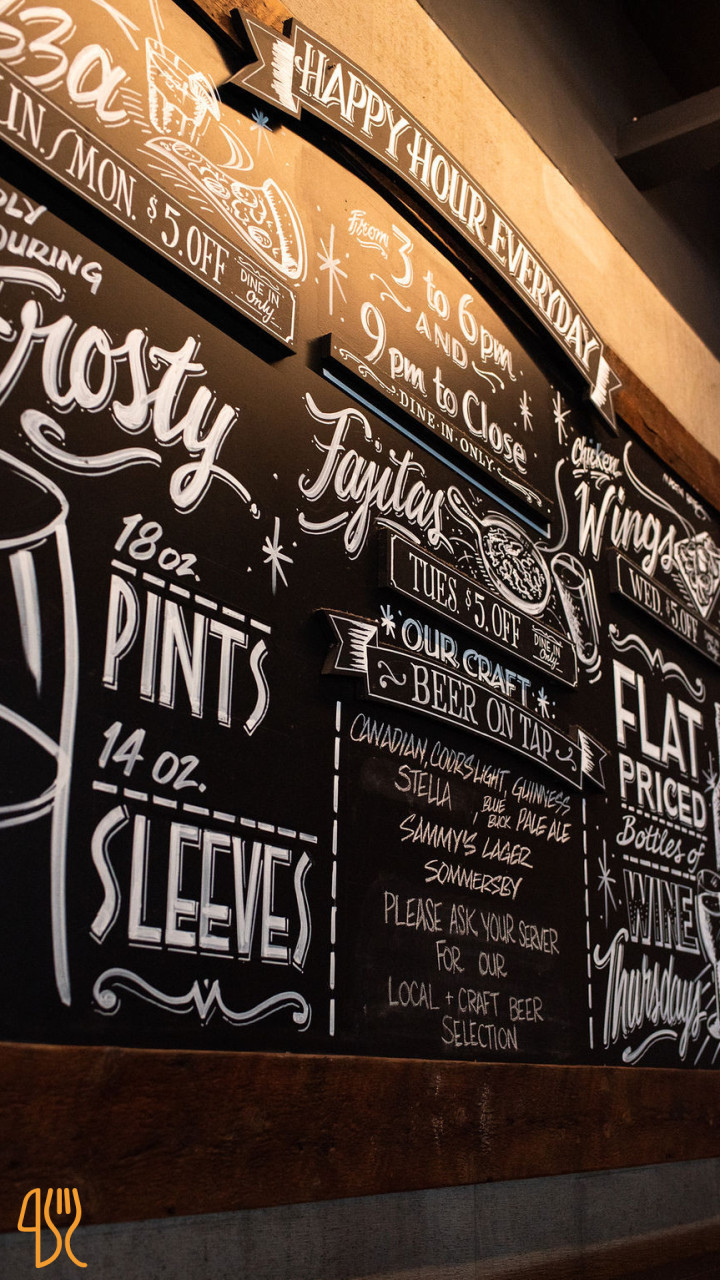 HAPPY HOUR EVERYDAY
From
3 to 6 pm
AND
9 pm to Close
DINE-IN ONLY
MON. $5.OFF
DINE IN
Only
Frosty
18 oz.
PINTS
14 oz.
SLEEVES
Fajitas
TUES. $5.OFF
DINE IN
Only
OUR CRAFT
BEER ON TAP
CANADIAN, COORS LIGHT, GUINNESS
STELLA, BLUE BUCK PALE ALE
SAMMY'S LAGER
SOMMERSBY
PLEASE ASK YOUR SERVER
FOR OUR
LOCAL + CRAFT BEER
SELECTION
Chicken
Wings
WED. $5.OFF
FLAT
PRICED
Bottles of
WINE
Thursdays